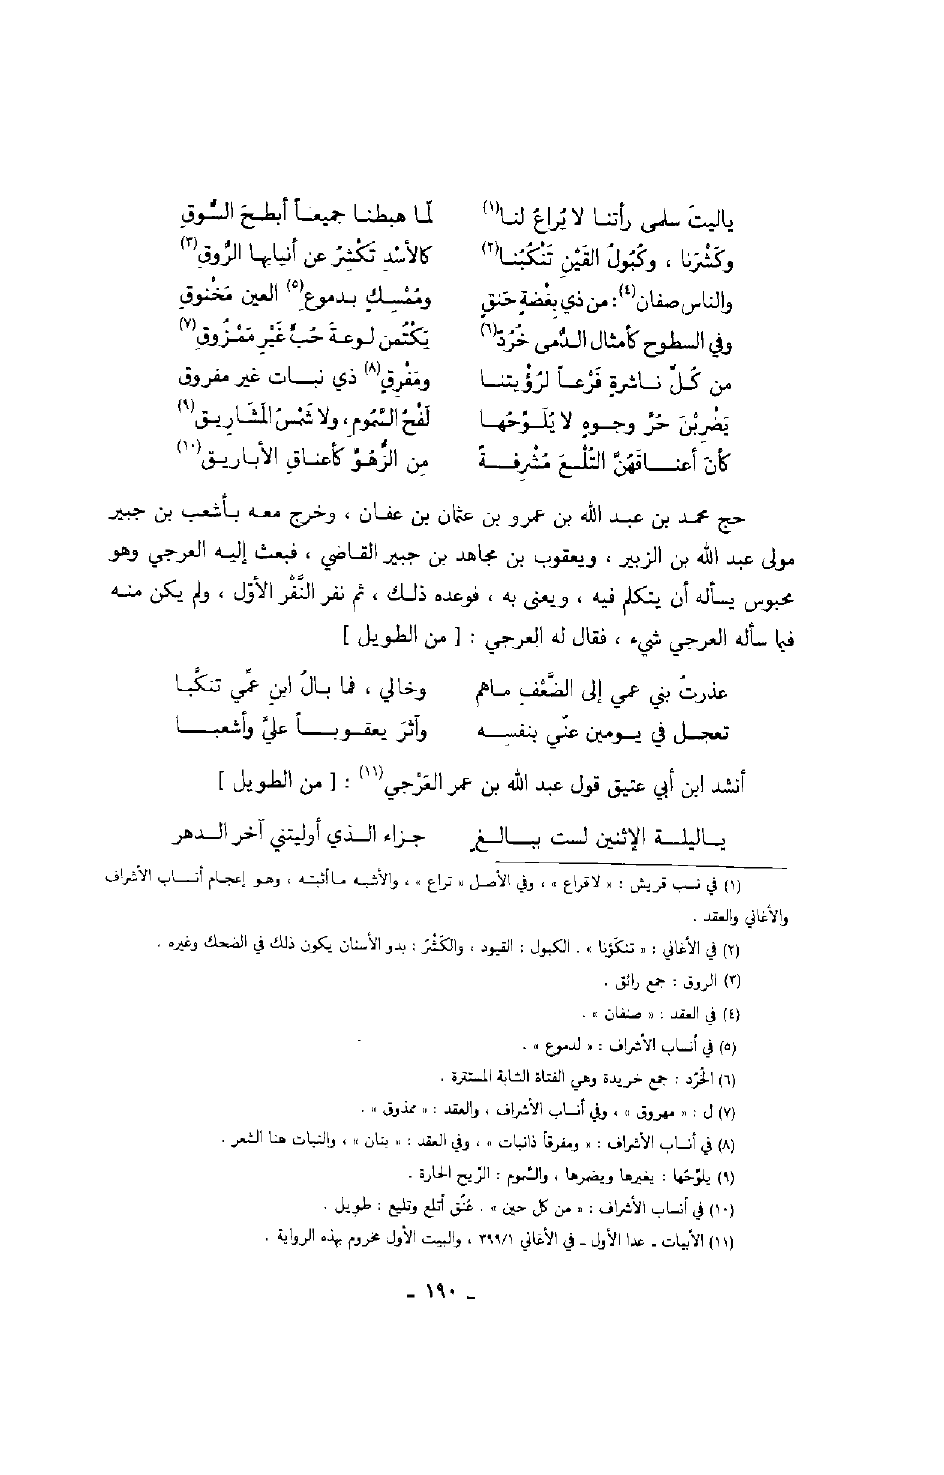 ياليتَ سلمى رأتنا لا يُراعُ لنا(١) لمّا هبطنا جميعاً أبطحَ السُّوقِ
وكَشْرَنا ، وكُبُولُ القَيْنِ تَنْكبُنا(٢) كالأسْدِ تَكْشِرُ عن أنيابِها الرُّوق(٣)
والناس صفان(٤) : من ذي بِغْضةٍ حَنِقٍ ومُمْسِكٍ بدموع(٥) العين مَخْنوقِ
وفي السطوح كأمثال الدُّمى خُرُدٌ(٦) يَكْتُمن لوعةَ حُبٍّ غَيْرِ مَمْزُوقِ(٧)
من كلِّ ناشرةٍ فَرْعاً لرُؤيتنا ومَفْرِقٍ(٨) ذي نبات غير مفروق
يَضْرِبْنَ حُرَّ وجوهٍ لا يُلَوِّحُها لَفْحُ السَّمُومِ ، ولا شَمْسُ المَشَاريقِ(٩)
كأن أعناقَهُنَّ التُلْعَ مُشْرِفةً مِن الزَّهْوِ كأعناقِ الأباريقِ(١٠)
حج محمد بن عبد الله بن عمرو بن عثمان بن عفان ، وخرج معه بأشعب بن جبير
مولى عبد الله بن الزبير ، ويعقوب بن مجاهد بن جبير القاضي ، فبعث إليه العرجي وهو
محبوس يسأله أن يتكلم فيه ، ويعنى به ، فوعده ذلك ، ثم نفر النَّفْر الأوّل ، ولم يكن منه
فيما سأله العرجي شيء ، فقال له العرجي : [ من الطويل ]
عذرتُ بني عمي إلى الضَّعْفِ ماهم وخالي ، فما بالُ ابنِ عمِّي تنكَّبا
تعجل في يومين عنّي بنفسه وآثرَ يعقوباً عليَّ وأشعبا
أنشد ابن أبي عتيق قول عبد الله بن عمر العَرْجي(١١) : [ من الطويل ]
ياليلة الإثنين لست ببالغٍ جزاء الذي أوليتني آخر الدهر
(١) في نسب قريش : « لاقراع » ، وفي الأصل « تراع » ، والأشبه ماأثبته ، وهو إعجام أنساب الأشراف
والأغاني والعقد .
(٢) في الأغاني : « تنكؤنا » . الكبول : القيود ، والكَشْرُ : بدو الأسنان يكون ذلك في الضحك وغيره .
(٣) الروق : جمع رائق .
(٤) في العقد : « صنفان » .
(٥) في أنساب الأشراف : « لدموع » .
(٦) الخُرَّد : جمع خريدة وهي الفتاة الشابة المستترة .
(٧) ل : « مهروق » ، وفي أنساب الأشراف ، والعقد : « ممذوق » .
(٨) في أنساب الأشراف : « ومفرقاً ذانبات » ، وفي العقد : « بنان » ، والنبات هنا الشعر .
(٩) يلوّحُها : يغيرها ويضمرها ، والسَّموم : الرّيح الحارة .
(١٠) في أنساب الأشراف : « من كل حين » . عُنُق أتلع وتليع : طويل .
(١١) الأبيات ـ عدا الأول ـ في الأغاني ٣٩٩/١ ، والبيت الأول مخروم بهذه الرواية .
ـ ١٩٠ ـ